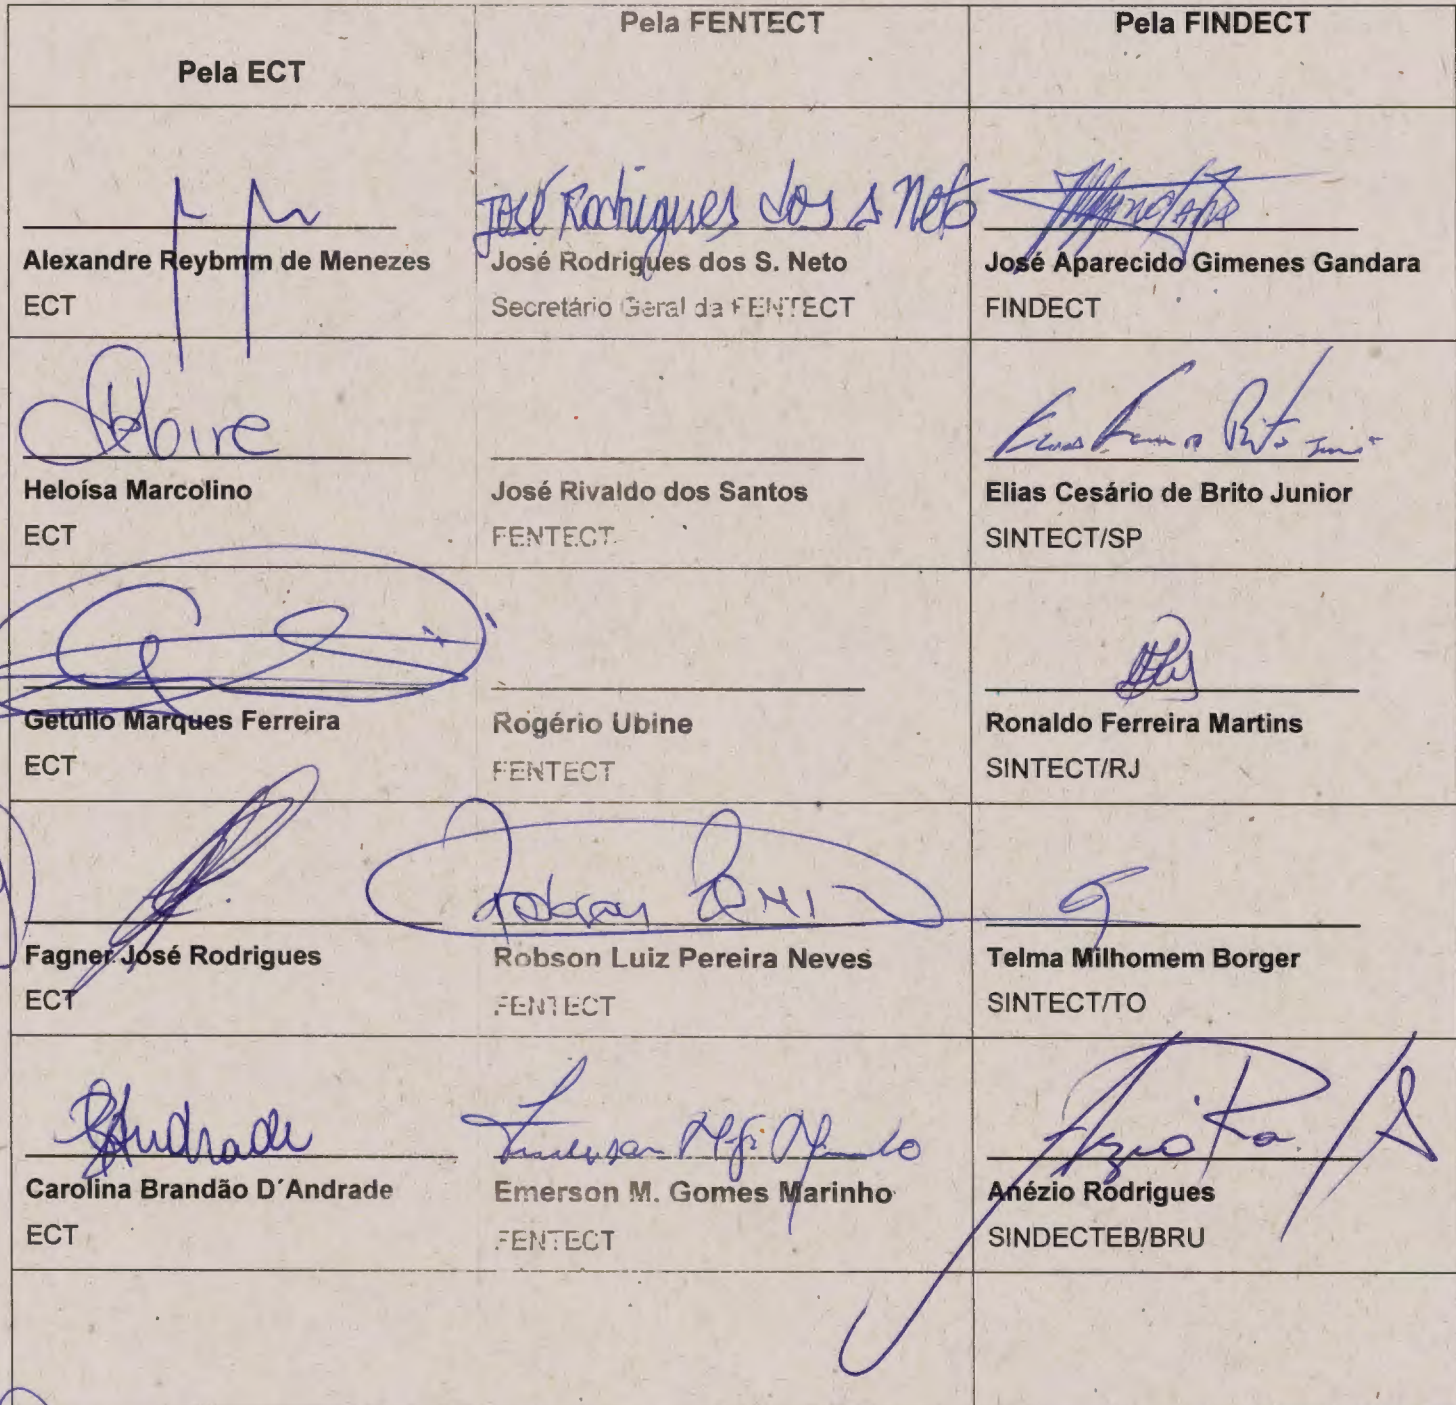 Pela ECT
Pela FENTECT
Pela FINDECT
Alexandre Reybmm de Menezes
ECT
José Rodrigues dos S Neto
José Rodrigues dos S. Neto
Secretário Geral da FENTECT
José Aparecido Gimenes Gandara
FINDECT
Heloísa Marcolino
ECT
José Rivaldo dos Santos
FENTECT
Elias Cesário de Brito Junior
SINTECT/SP
Getúlio Marques Ferreira
ECT
Rogério Ubine
FENTECT
Ronaldo Ferreira Martins
SINTECT/RJ
Fagner José Rodrigues
ECT
Robson Luiz Pereira Neves
FENTECT
Telma Milhomem Borger
SINTECT/TO
Andrade
Carolina Brandão D´Andrade
ECT
Emerson M. Gomes Marinho
FENTECT
Anézio Rodrigues
SINDECTEB/BRU